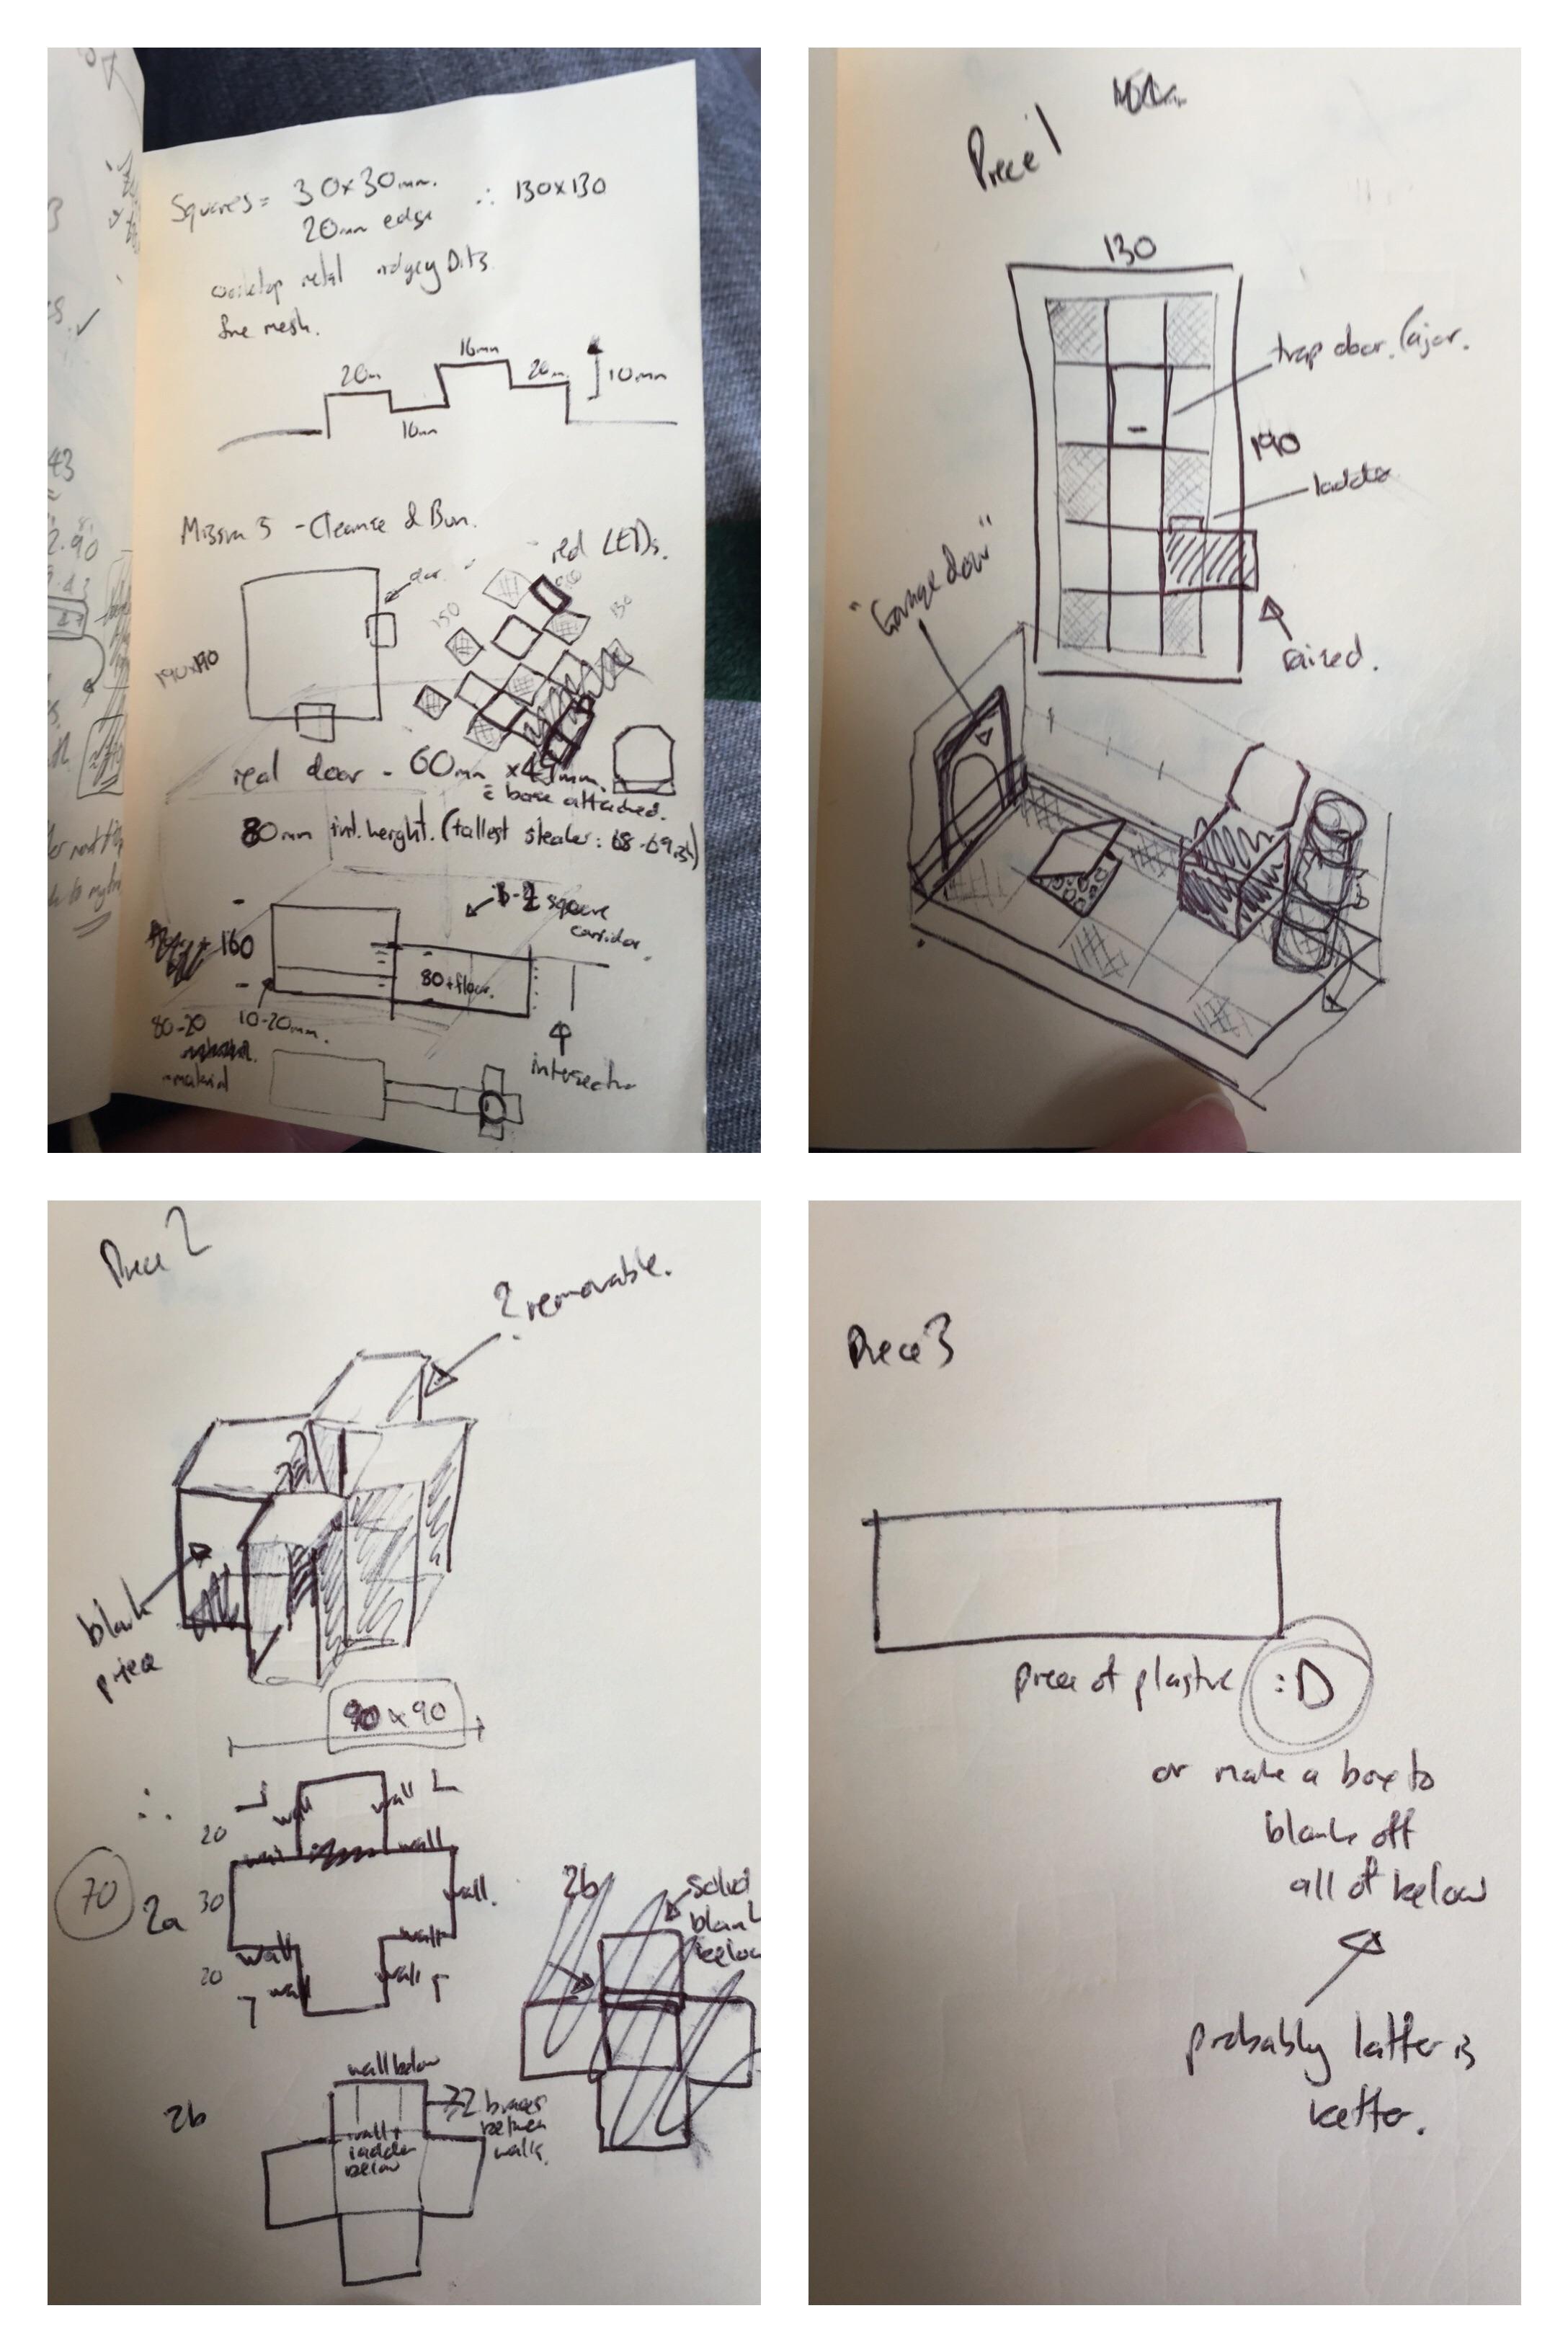 Squares = 30x30mm.
20mm edge
∴ 130x130
metal ridgey bits
fine mesh.
16mm
20m
20m.
10mm
10mm
Mission 5 - Cleanse & Burn.
red LEDs.
door
150
130
190x190
real door - 60mm x45mm.
c̄ base attached.
80mm int. height. (tallest stealer: 68-69ish)
square
corridor.
160
80+floor.
80-20
10-20mm.
material
intersectn
Piece 1
130
trap door. (ajar.
190
ladder
"Garage door"
raised.
Piece 2
? removable.
blank
piece
90x90
∴
wall
wall
20
wall
wall
70
2a
30
wall.
wall
wall
20
wall
wall
2b
solid
blank
below
wall below
2b
2 braces
between
walls.
wall +
ladder
below
Piece 3
piece of plastic :D
or make a box to
blank off
all of below
probably latter is
better.